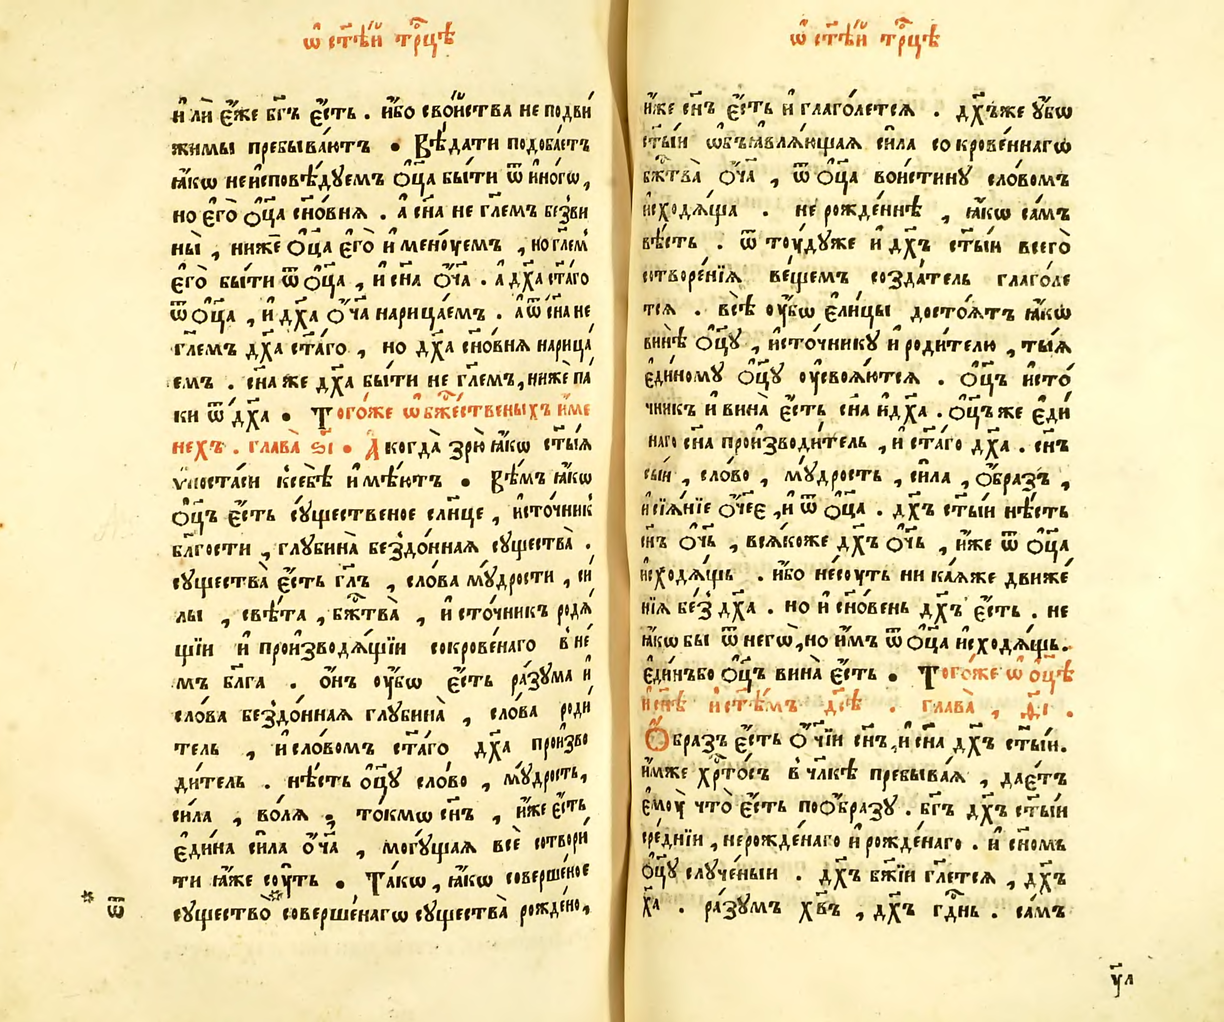 ѡ҆ ст҃ѣ́й трⷪ҇цѣ
и҆лѝ є҆́же бг҃ъ є҆́сть . и҆́бо сво́йства не подви́
жимы пребыва́ютъ • Вѣ́дати подоба́етъ
ꙗ҆́кѡ не и҆сповѣ́дꙋемъ ѻ҆ц҃а̀ бы́ти ѿ и҆но́гѡ ,
но є҆го̀ ѻ҆ц҃а̀ сн҃о́внѧ . а҆ сн҃а не гл҃емъ безви
ны̀ , нижѐ ѻ҆ц҃а є҆го̀ и҆менꙋ́емъ , но гл҃ем
є҆го̀ бы́ти ѿ ѻ҆ц҃а̀ , и҆ сн҃а ѻ҆́ч҃а . а҆ дх҃а ст҃а́го
ѿ ѻ҆ц҃а̀ , и҆ дх҃а ѻ҆́ч҃а нарица́емъ . а҆ ѿ сн҃а не
гл҃емъ дх҃а ст҃а́го , но дх҃а сн҃о́внѧ нарица́
емъ . сн҃а же дх҃а бы́ти не гл҃емъ , нижѐ па́
ки ѿ дх҃а • Того́же ѡ҆ бж҃е́ственыхъ и҆́ме
нехъ . глава̀ в҃і • А҆ когда̀ зрю̀ ꙗ҆́кѡ ст҃ы́ѧ
ѵ҆поста́си к себѣ̀ и҆мѣ́ютъ • Вѣ́мъ ꙗ҆́кѡ
ѻ҆ц҃ъ є҆́сть сꙋ́щественое сл҃нце , и҆сто́чник
бл҃гости , глꙋбина̀ бездо́нная сꙋщества̀ .
сꙋщества̀ є҆́сть гл҃ъ , сло́ва мꙋ́дрости , си́
лы , свѣ́та , бж҃тва̀ , и҆сто́чникъ родѧ́
щїи и҆ производѧ́щїи сокрове́наго в не́
мъ бл҃га . ѻ҆́нъ ᲂу҆́бѡ є҆́сть ра́зꙋма и҆
сло́ва бездо́нная глꙋбина̀ , сло́ва роди́
тель , и҆ сло́вомъ ст҃а́го дх҃а произво
ди́тель . нѣ́сть ѻ҆ц҃ꙋ̀ сло́во , мꙋ́дрость ,
си́ла , во́лѧ , то́кмѡ сн҃ъ , и҆́же є҆́сть
є҆ди́на си́ла ѻ҆́ч҃а , могꙋ́щая всѐ сотвори́
ти ꙗ҆́же сꙋ́ть • Та́кѡ , ꙗ҆́кѡ соверше́ное
сꙋщество̀ соверше́нагѡ сꙋщества̀ рожде́но ,
* ѿ
ѡ҆ ст҃ѣ́й трⷪ҇цѣ
и҆́же сн҃ъ є҆́сть и҆ глаго́летсѧ . дх҃ъ же ᲂу҆́бѡ
ст҃ы́и ѡ҆бъꙗвлѧ́ющая си́ла сокрове́ннагѡ
бж҃тва̀ ѻ҆́ч҃а , ѿ ѻ҆ц҃а̀ вои́стинꙋ сло́вомъ
и҆сходѧ́ща . не рожде́ннѣ , ꙗ҆́кѡ са́мъ
вѣ́сть . ѿ тꙋ́дꙋже и҆ дх҃ъ ст҃ы́и всего̀
сотворе́нїѧ ве́щемъ созда́тель глаго́ле
тсѧ . всѣ̀ ᲂу҆́бѡ є҆ли́цы достоѧ́тъ ꙗ҆́кѡ
винѣ̀ ѻ҆ц҃ꙋ̀ , и҆сто́чникꙋ и҆ роди́телю , ты́ѧ
є҆ди́номꙋ ѻ҆ц҃ꙋ̀ ᲂу҆своѧ́ютсѧ . ѻ҆ц҃ъ и҆сто́
чникъ и҆ вина̀ є҆́сть сн҃а и҆ дх҃а . ѻ҆ц҃ъ же є҆ди́
наго сн҃а производи́тель , и҆ ст҃а́го дх҃а . сн҃ъ
сы́и , сло́во , мꙋ́дрость , си́ла , ѻ҆́бразъ ,
и҆ сїѧ́нїе ѻ҆́ч҃ее , и҆ ѿ ѻ҆ц҃а . дх҃ъ ст҃ы́и нѣ́сть
сн҃ъ ѻ҆ч҃ь , всѧ́коже дх҃ъ ѻ҆ч҃ь , и҆́же ѿ ѻ҆ц҃а
и҆сходѧ́щь . и҆́бо несꙋ́ть ни ка́ѧже движе́
нїѧ без̾ дх҃а . но и҆ сн҃о́вень дх҃ъ є҆́сть . не
ꙗ҆́кѡ бы ѿ негѡ̀ , но и҆́мъ ѿ ѻ҆ц҃а и҆сходѧ́щь .
є҆ди́нъ бо ѻ҆ц҃ъ вина̀ є҆́сть • Того́же ѡ҆ ѻ҆ц҃ѣ
и҆ сн҃ѣ и҆ ст҃ѣ́мъ дс҃ѣ . глава̀ ,
Ѻ҆́бразъ є҆́сть ѻ҆́ч҃їи сн҃ъ , и҆ сн҃а дх҃ъ ст҃ы́и .
и҆́мже хрⷭ҇то́съ в члк҃ѣ пребыва́ѧ , дае́тъ
є҆мꙋ̀ что̀ є҆́сть по ѻ҆́бразꙋ . бг҃ъ дх҃ъ ст҃ы́и
сре́днїи , нерожде́наго и҆ рожде́наго . и҆ сн҃омъ
ѻ҆ц҃ꙋ̀ слꙋче́ныи . дх҃ъ бж҃їи гл҃етсѧ , дх҃ъ
х҃а . ра́зꙋмъ хв҃ъ , дх҃ъ гдⷭ҇нь . са́мъ
ул